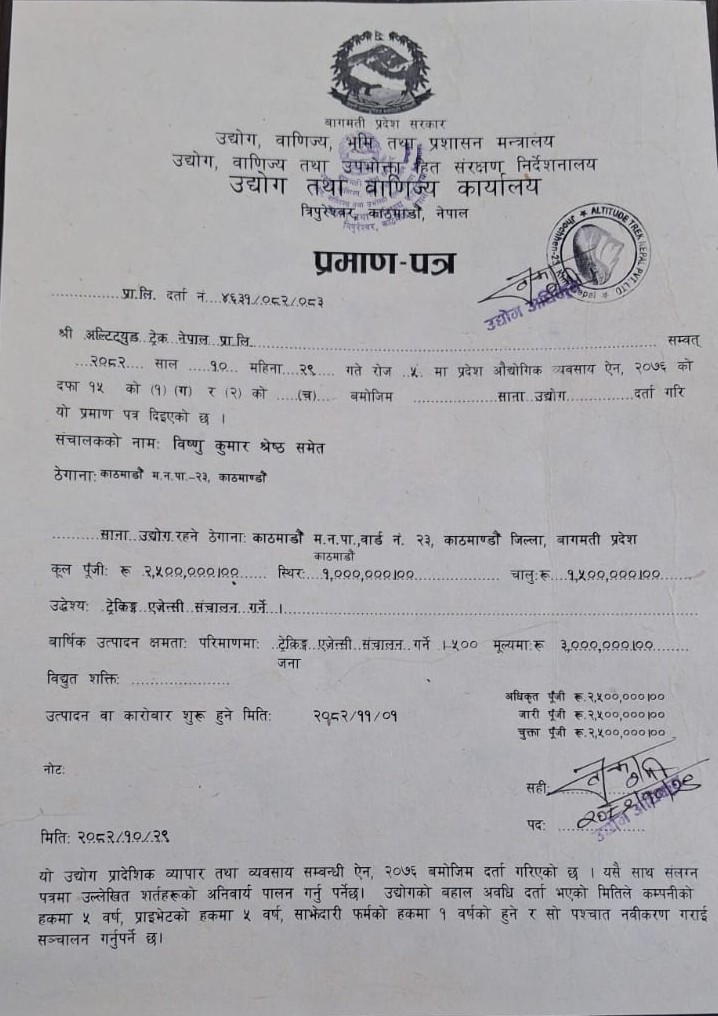 बागमती प्रदेश सरकार
उद्योग, वाणिज्य, भूमि तथा प्रशासन मन्त्रालय
उद्योग, वाणिज्य तथा उपभोक्ता हित संरक्षण निर्देशनालय
उद्योग तथा वाणिज्य कार्यालय
त्रिपुरेश्वर, काठमाडौं, नेपाल
प्रमाण-पत्र
ALTITUDE TREK NEPAL PVT. LTD
उद्योग अधिकृत
प्रा.लि. दर्ता नं. ४६३१/०८२/०८३
श्री अल्टिट्युड ट्रेक नेपाल प्रा.लि. सम्वत्
२०८२ साल १० महिना २९ गते रोज ५ मा प्रदेश औद्योगिक व्यवसाय ऐन, २०७६ को
दफा १५ को (१) (ग) र (२) को (च) बमोजिम साना उद्योग दर्ता गरि
यो प्रमाण पत्र दिइएको छ ।
संचालकको नाम: विष्णु कुमार श्रेष्ठ समेत
ठेगाना: काठमाडौं म.न.पा.-२३, काठमाण्डौं
साना उद्योग रहने ठेगाना: काठमाडौं म.न.पा.,वार्ड नं. २३, काठमाण्डौं जिल्ला, बागमती प्रदेश
काठमाडौं
कूल पूँजी: रू २,५००,०००|०० स्थिर: १,०००,०००|०० चालु:रू १,५००,०००|००
उद्धेश्य: ट्रेकिङ्ग एजेन्सी संचालन गर्ने ।
वार्षिक उत्पादन क्षमता: परिमाणमा: ट्रेकिङ्ग एजेन्सी संचालन गर्ने ।-५०० मूल्यमा:रू ३,०००,०००|००
जना
विद्युत शक्ति:
अधिकृत पूँजी रू.२,५००,०००|००
उत्पादन वा कारोबार शुरू हुने मिति: २०८२/११/०१ जारी पूँजी रू.२,५००,०००|००
चुक्ता पूँजी रू.२,५००,०००|००
नोट:
सही:
२०८२/१०/२९
पद:
उद्योग अधिकृत
मिति: २०८२/१०/२९
यो उद्योग प्रादेशिक व्यापार तथा व्यवसाय सम्बन्धी ऐन, २०७६ बमोजिम दर्ता गरिएको छ । यसै साथ संलग्न
पत्रमा उल्लेखित शर्तहरूको अनिवार्य पालन गर्नु पर्नेछ। उद्योगको बहाल अवधि दर्ता भएको मितिले कम्पनीको
हकमा ५ वर्ष, प्राइभेटको हकमा ५ वर्ष, साझेदारी फर्मको हकमा १ वर्षको हुने र सो पश्चात नवीकरण गराई
सञ्चालन गर्नुपर्ने छ।